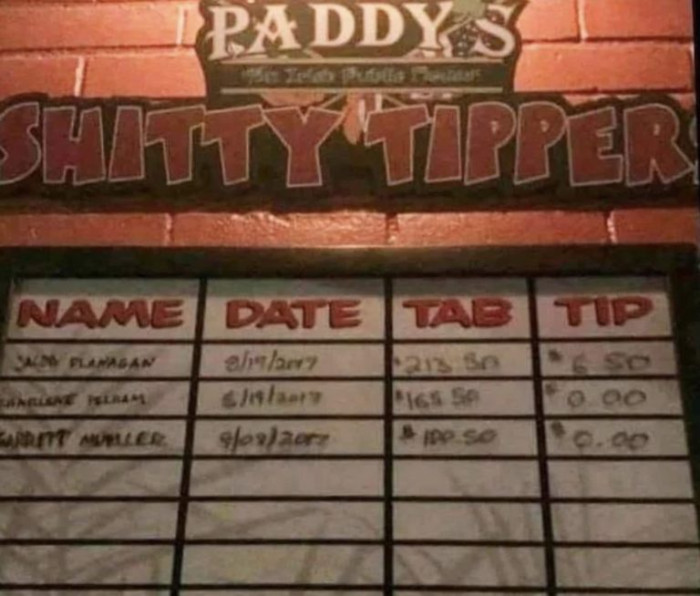 PADDY'S
An Irish Public House
SHITTY TIPPER
NAME DATE TAB TIP
FLANAGAN 8/19/2017 $213.50 $6.50
CHARLENE 8/19/2017 $165.50 $0.00
GARRETT MUELLER 9/08/2017 $100.50 $0.00